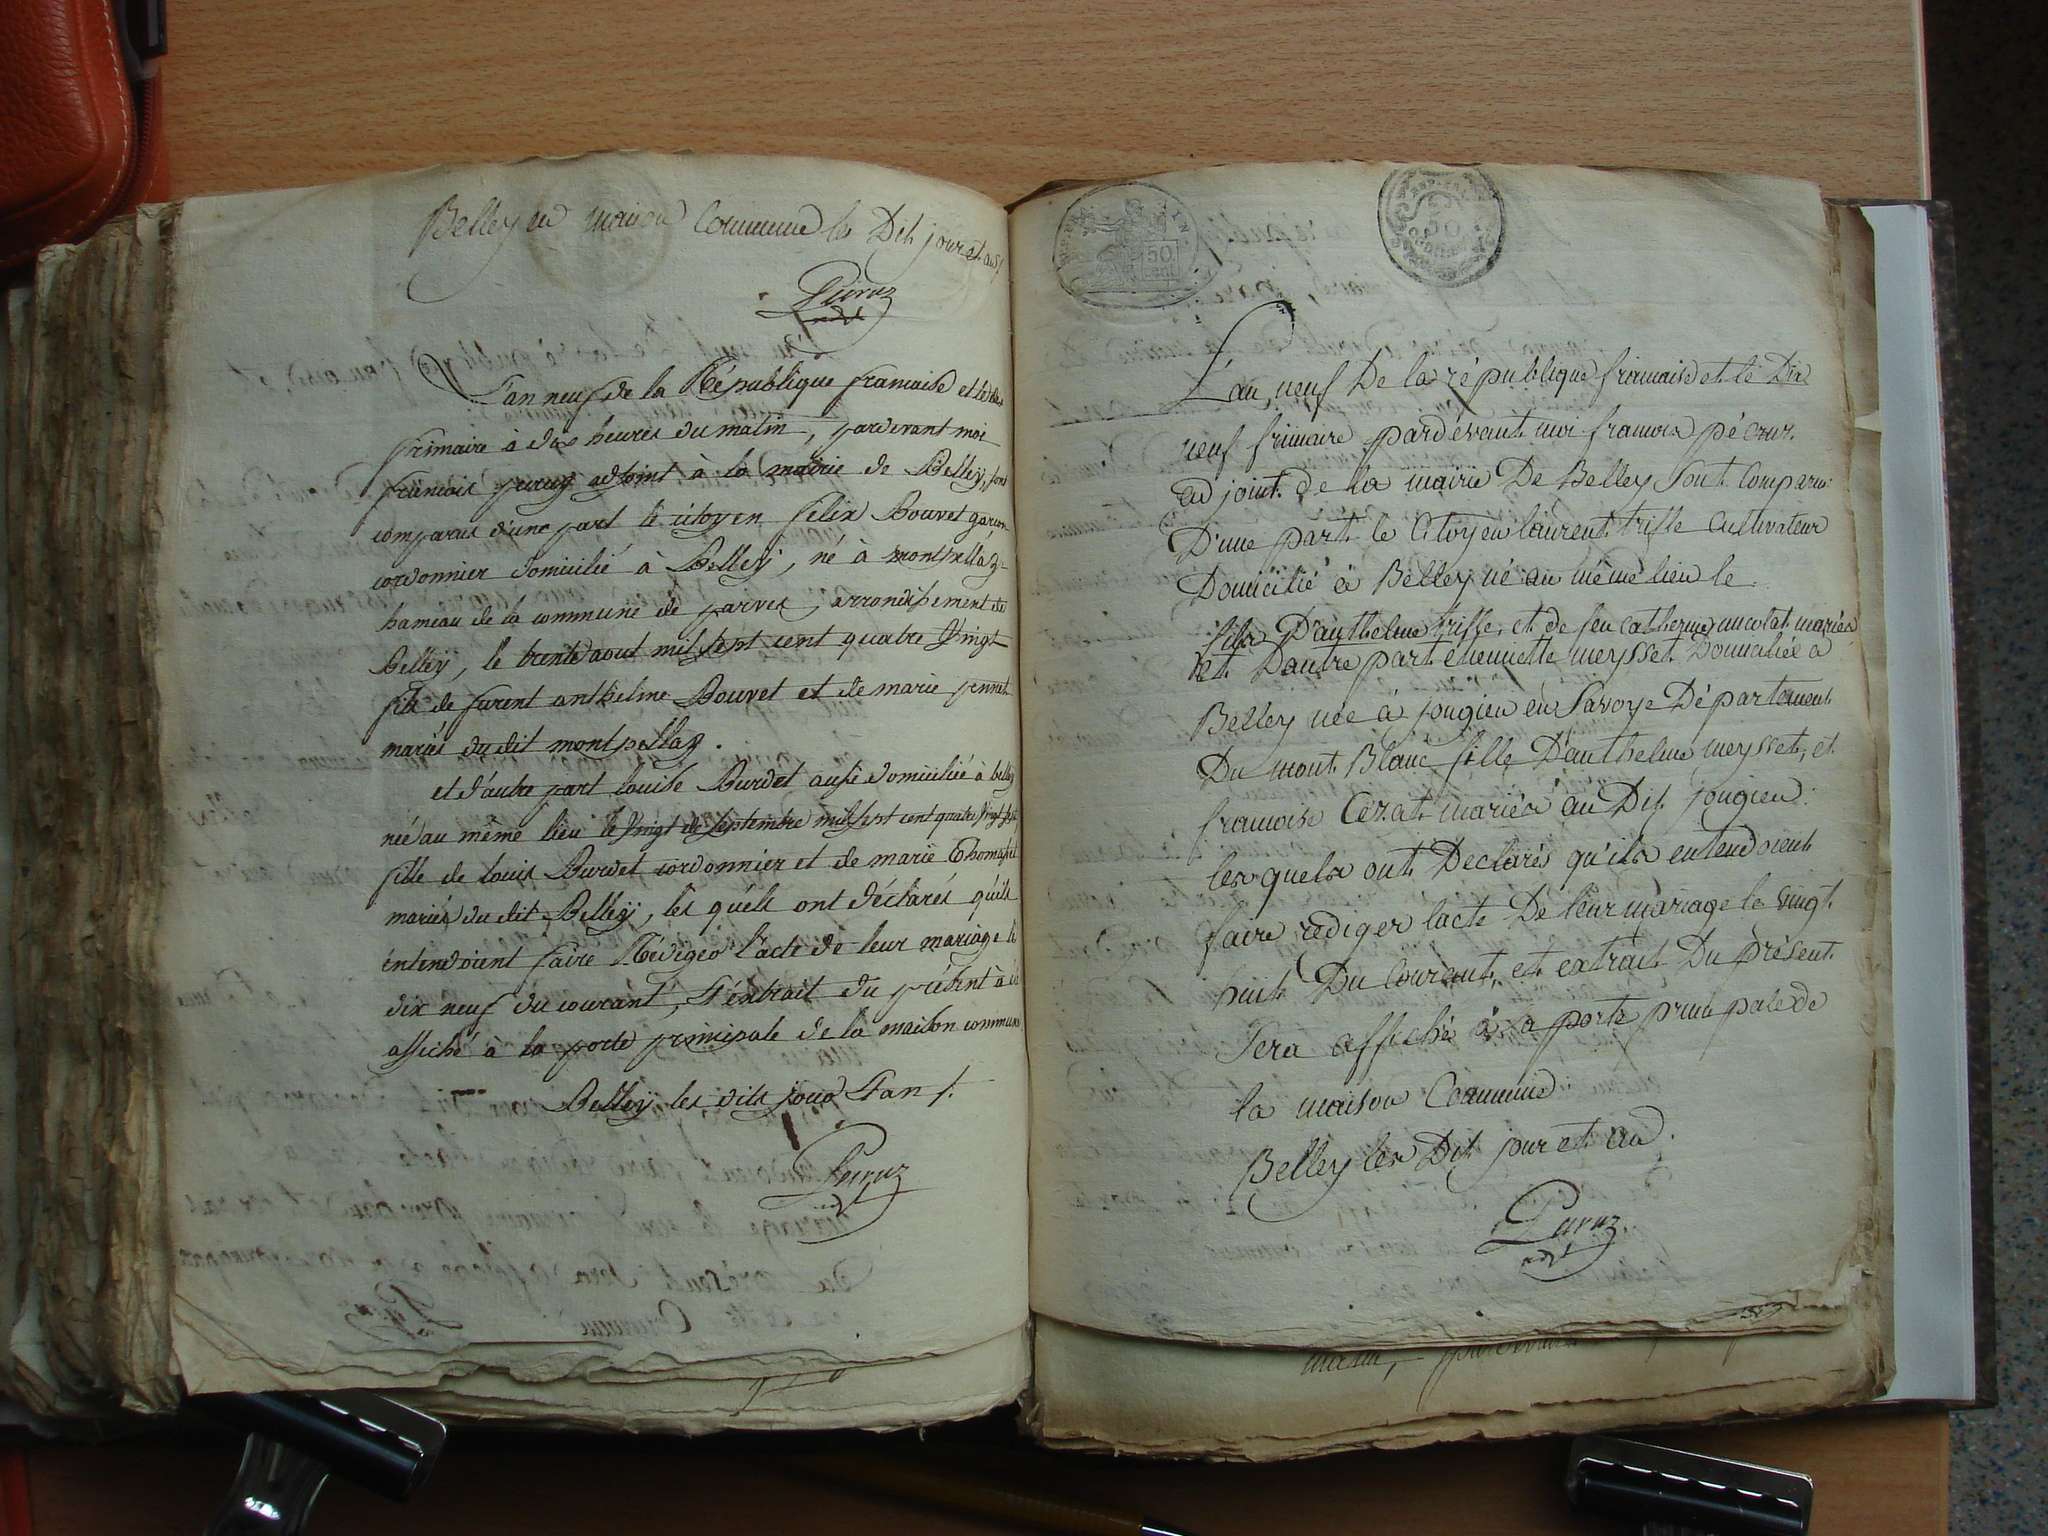 Belley en maison Commune les Dit jour et an
Peiruz
adjt
L'an neuf de la République francaise et le dix
frimaire à dix heures du matin, pardevant moi
francois peruz adjoint à la mairie de Belley, sont
comparus d'une part le citoyen felix Bouvet garcon
cordonnier domicilié à Belley, né à montpellaz
hameau de la commune de parves, arrondissement de
Belley, le trente aout mil sept cent quatre vingt
fils de furent anthelme Bouvet et de marie
mariés du dit montpellaz.
et d'autre part louise Burdet aussi domiciliée à belley
née au même lieu le vingt de septembre mil sept cent quatre vingt
fille de louis Burdet cordonnier et de marie Thomasset
mariés du dit Belley, les quels ont déclarés qu'ils
entendoient faire Rédiger l'acte de leur mariage le
dix neuf du courant, & extrait du présent à été
affiché à la porte principale de la maison commune
Belley les dits jour & an /.
Peiruz
adjt
REP. FRA.
50
cent
REP. FRA.
50
L'an neuf De la république francaise et le Dix
neuf frimaire pardévant moi francois péeruz
adjoint de la mairie De Belley Sont Comparu
D'une part le Citoyen laurent triffe cultivateur
Domicilié à Belley né au même lieu le
fils D'anthelme triffe, et de feu catherine nicolat mariés
et D'autre part etiennette meysset Domiciliée à
Belley née à jongieu en Savoye Département
Du mont Blanc fille D'anthelme meysset, et
francoise Cozat mariés au Dit jongieu.
les quels ont Declarés qu'ils entendoient
faire rediger lacte De leur mariage le vingt
huit Du Courant, et extrait Du présent
Sera affiché à la porte principale de
la maison Commune
Belley les Dit jour et an.
Peruz
adjt